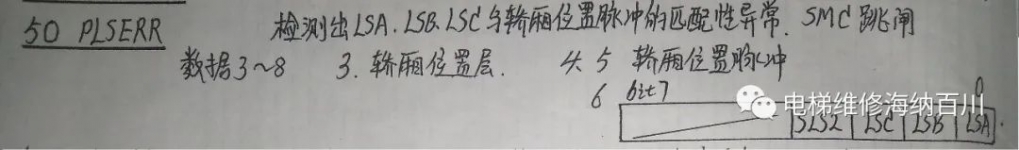 50 PLSERR 检测出LSA.LSB.LSC与轿厢位置脉冲的匹配性异常. SMC跳闸
数据3~8 3. 轿厢位置层. 4.5 轿厢位置脉冲
6 bit7 0
SLS2 LSC LSB LSA.
电梯维修海纳百川